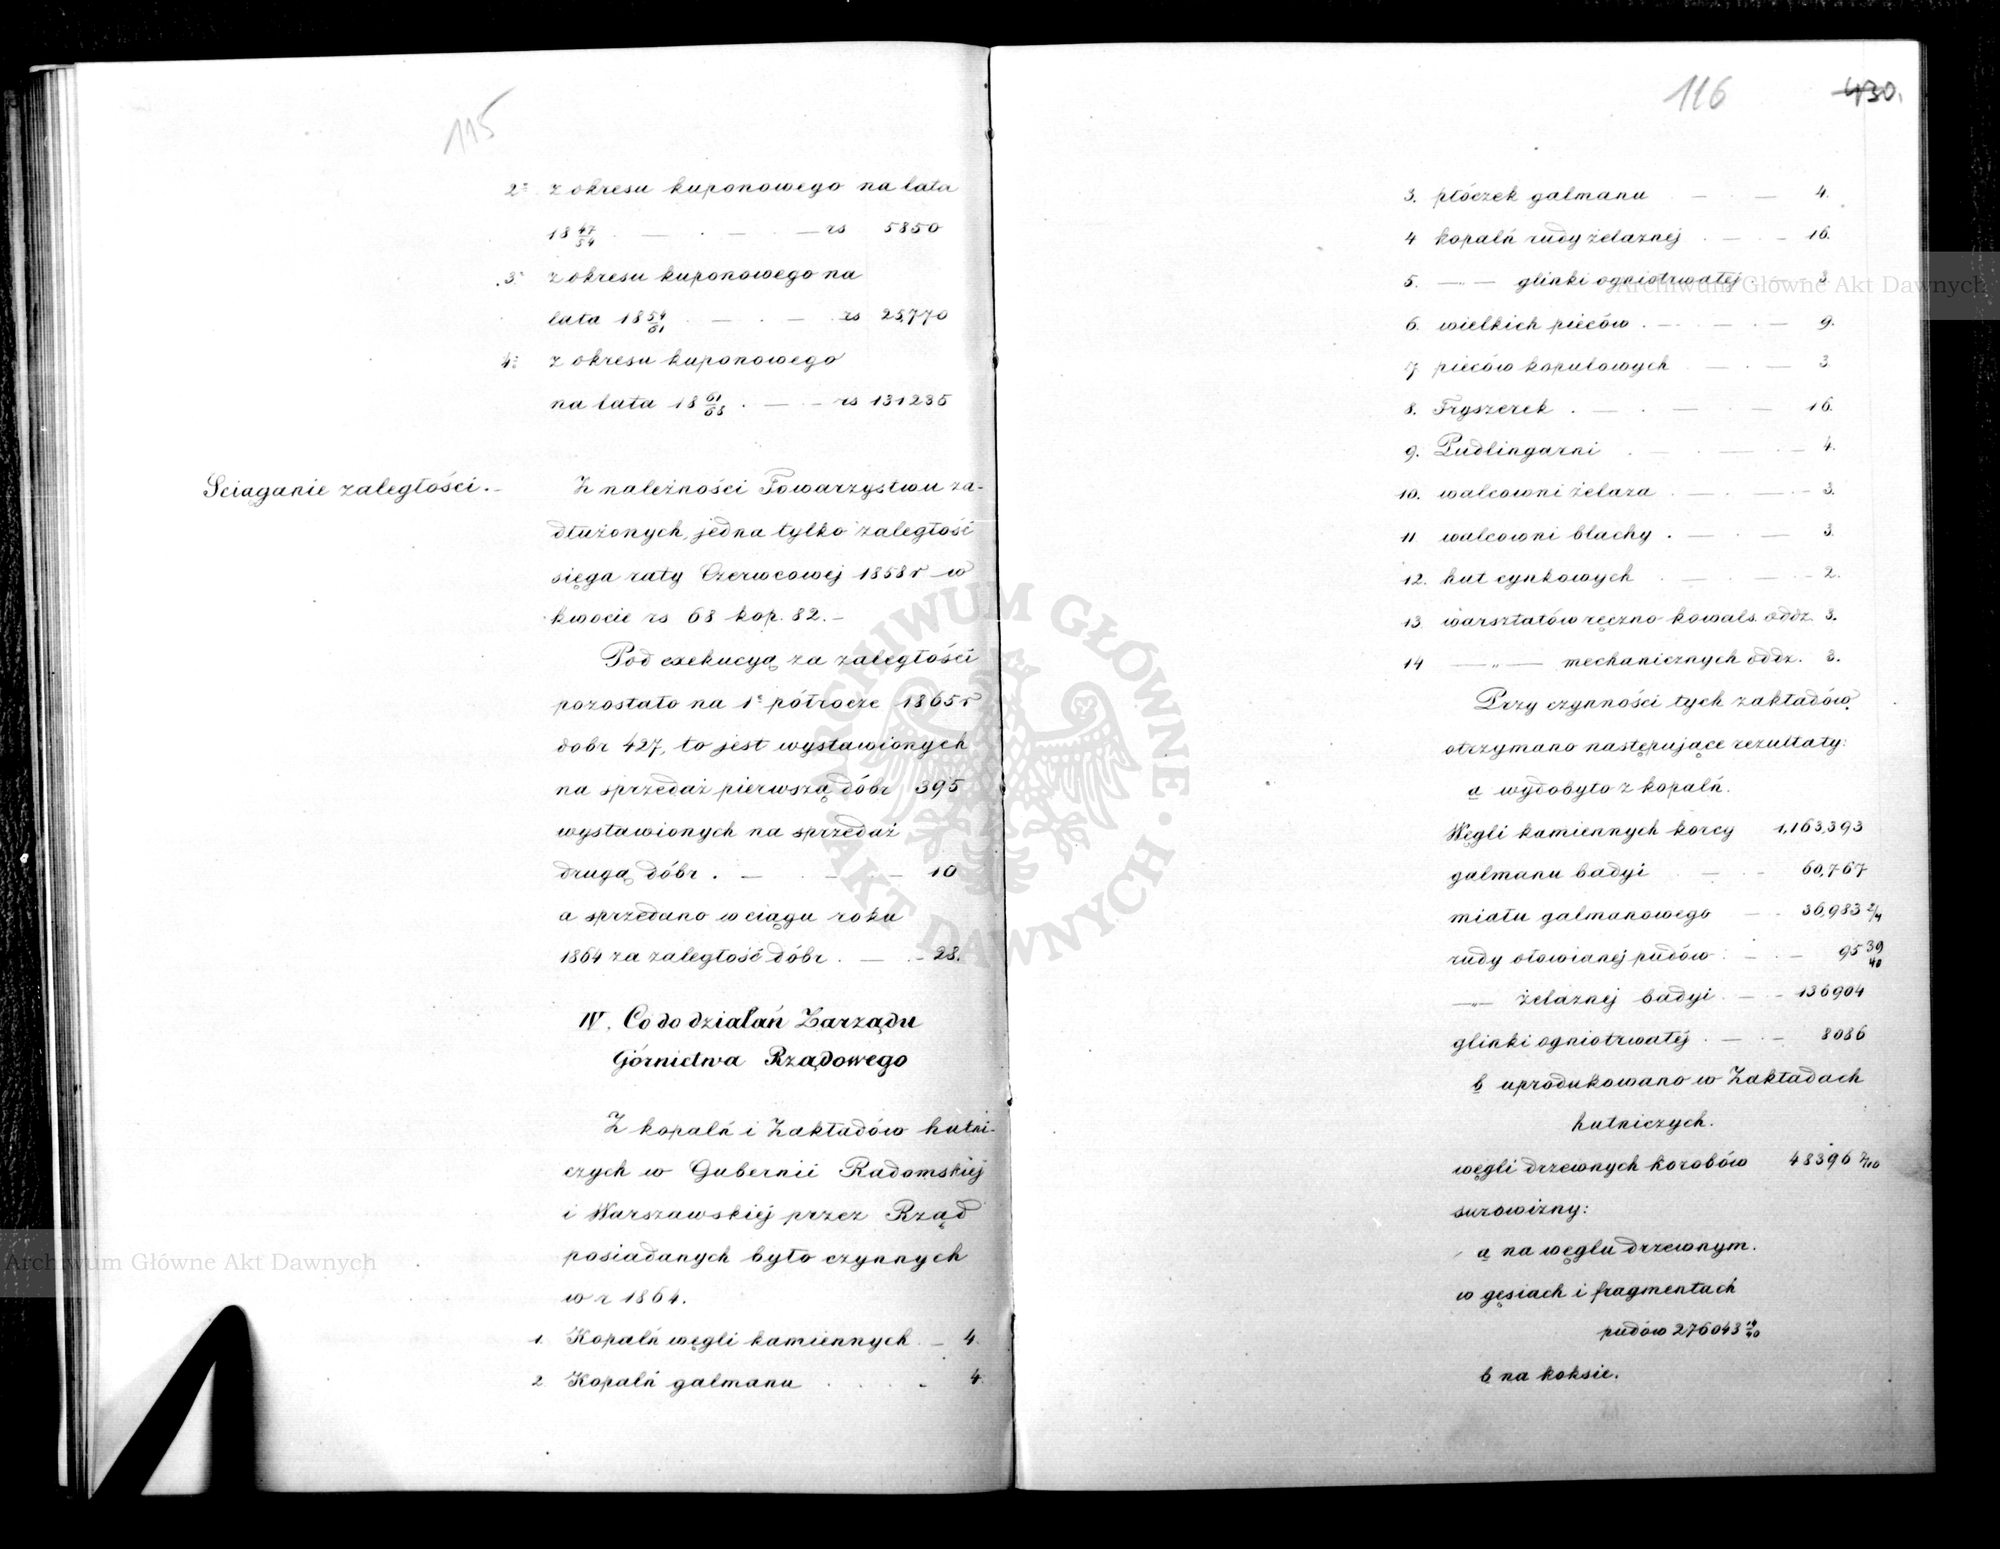 115
2º z okresu kuponowego na lata
18 47/54 . — . — . — rs 5850
3º z okresu kuponowego na
lata 18 54/61 — . — rs 25,770
4º z okresu kuponowego
na lata 18 61/68 . — . — rs 131235
Sciąganie zaległości. –
Z należności Towarzystwu za-
dłużonych, jedna tylko zaległość
sięga raty Czerwcowej 1858 r w
kwocie rs 68 kop. 82. –
Pod exekucyą za zaległości
pozostało na 1º półrocze 1865 r
dobr 427, to jest wystawionych
na sprzedaż pierwszą dóbr 395
wystawionych na sprzedaż
drugą dóbr . — . — . — 10
a sprzedano w ciągu roku
1864 za zaległość dóbr . — . – 28.
IV. Co do działań Zarządu
Górnictwa Rządowego
Z kopalń i Zakładów hutni-
czych w Gubernii Radomskiej
i Warszawskiéj przez Rząd
posiadanych było czynnych
w r 1864.
1. Kopalń węgli kamiennych . – 4.
2 Kopalń galmanu . . . . – 4.
116 430.
3. płóczek galmanu — . — 4.
4 kopalń rudy żelaznej . — . – 16.
5. —"— glinki ogniotrwałéj . — 3
6. wielkich pieców . — . — . — 9.
7 pieców kopulowych — . — 3
8. Fryszerek . — . — . — 16.
9. Pudlingarni . — . — . — 4.
10. walcowni żelaza . — . — . – 3.
11 walcowni blachy . — . — 3.
12. hut cynkowych . — . — . – 2.
13 warsztatów ręczno kowals. oddz. 3.
14 —"— mechanicznych oddz. 3.
Przy czynności tych zakładów
otrzymano następujące rezultaty:
a wydobyto z kopalń.
Węgli kamiennych korcy 1,163,393
galmanu badyi — . – 60,767
miału galmanowego — . 36,983 2/4
rudy ołowianej pudów . — . — 95 39/40
—"— żelaznéj badyi . — . – 136904
glinki ogniotrwałéj . — . – 8086
b uprodukowano w Zakładach
hutniczych.
węgli drzewnych korobów 48396 7/10
surowizny:
a na węglu drzewnym.
w gęsiach i fragmentach
pudów 276043 14/40
b na koksie.
Archiwum Główne Akt Dawnych
Archiwum Główne Akt Dawnych
ARCHIWUM GŁÓWNE AKT DAWNYCH